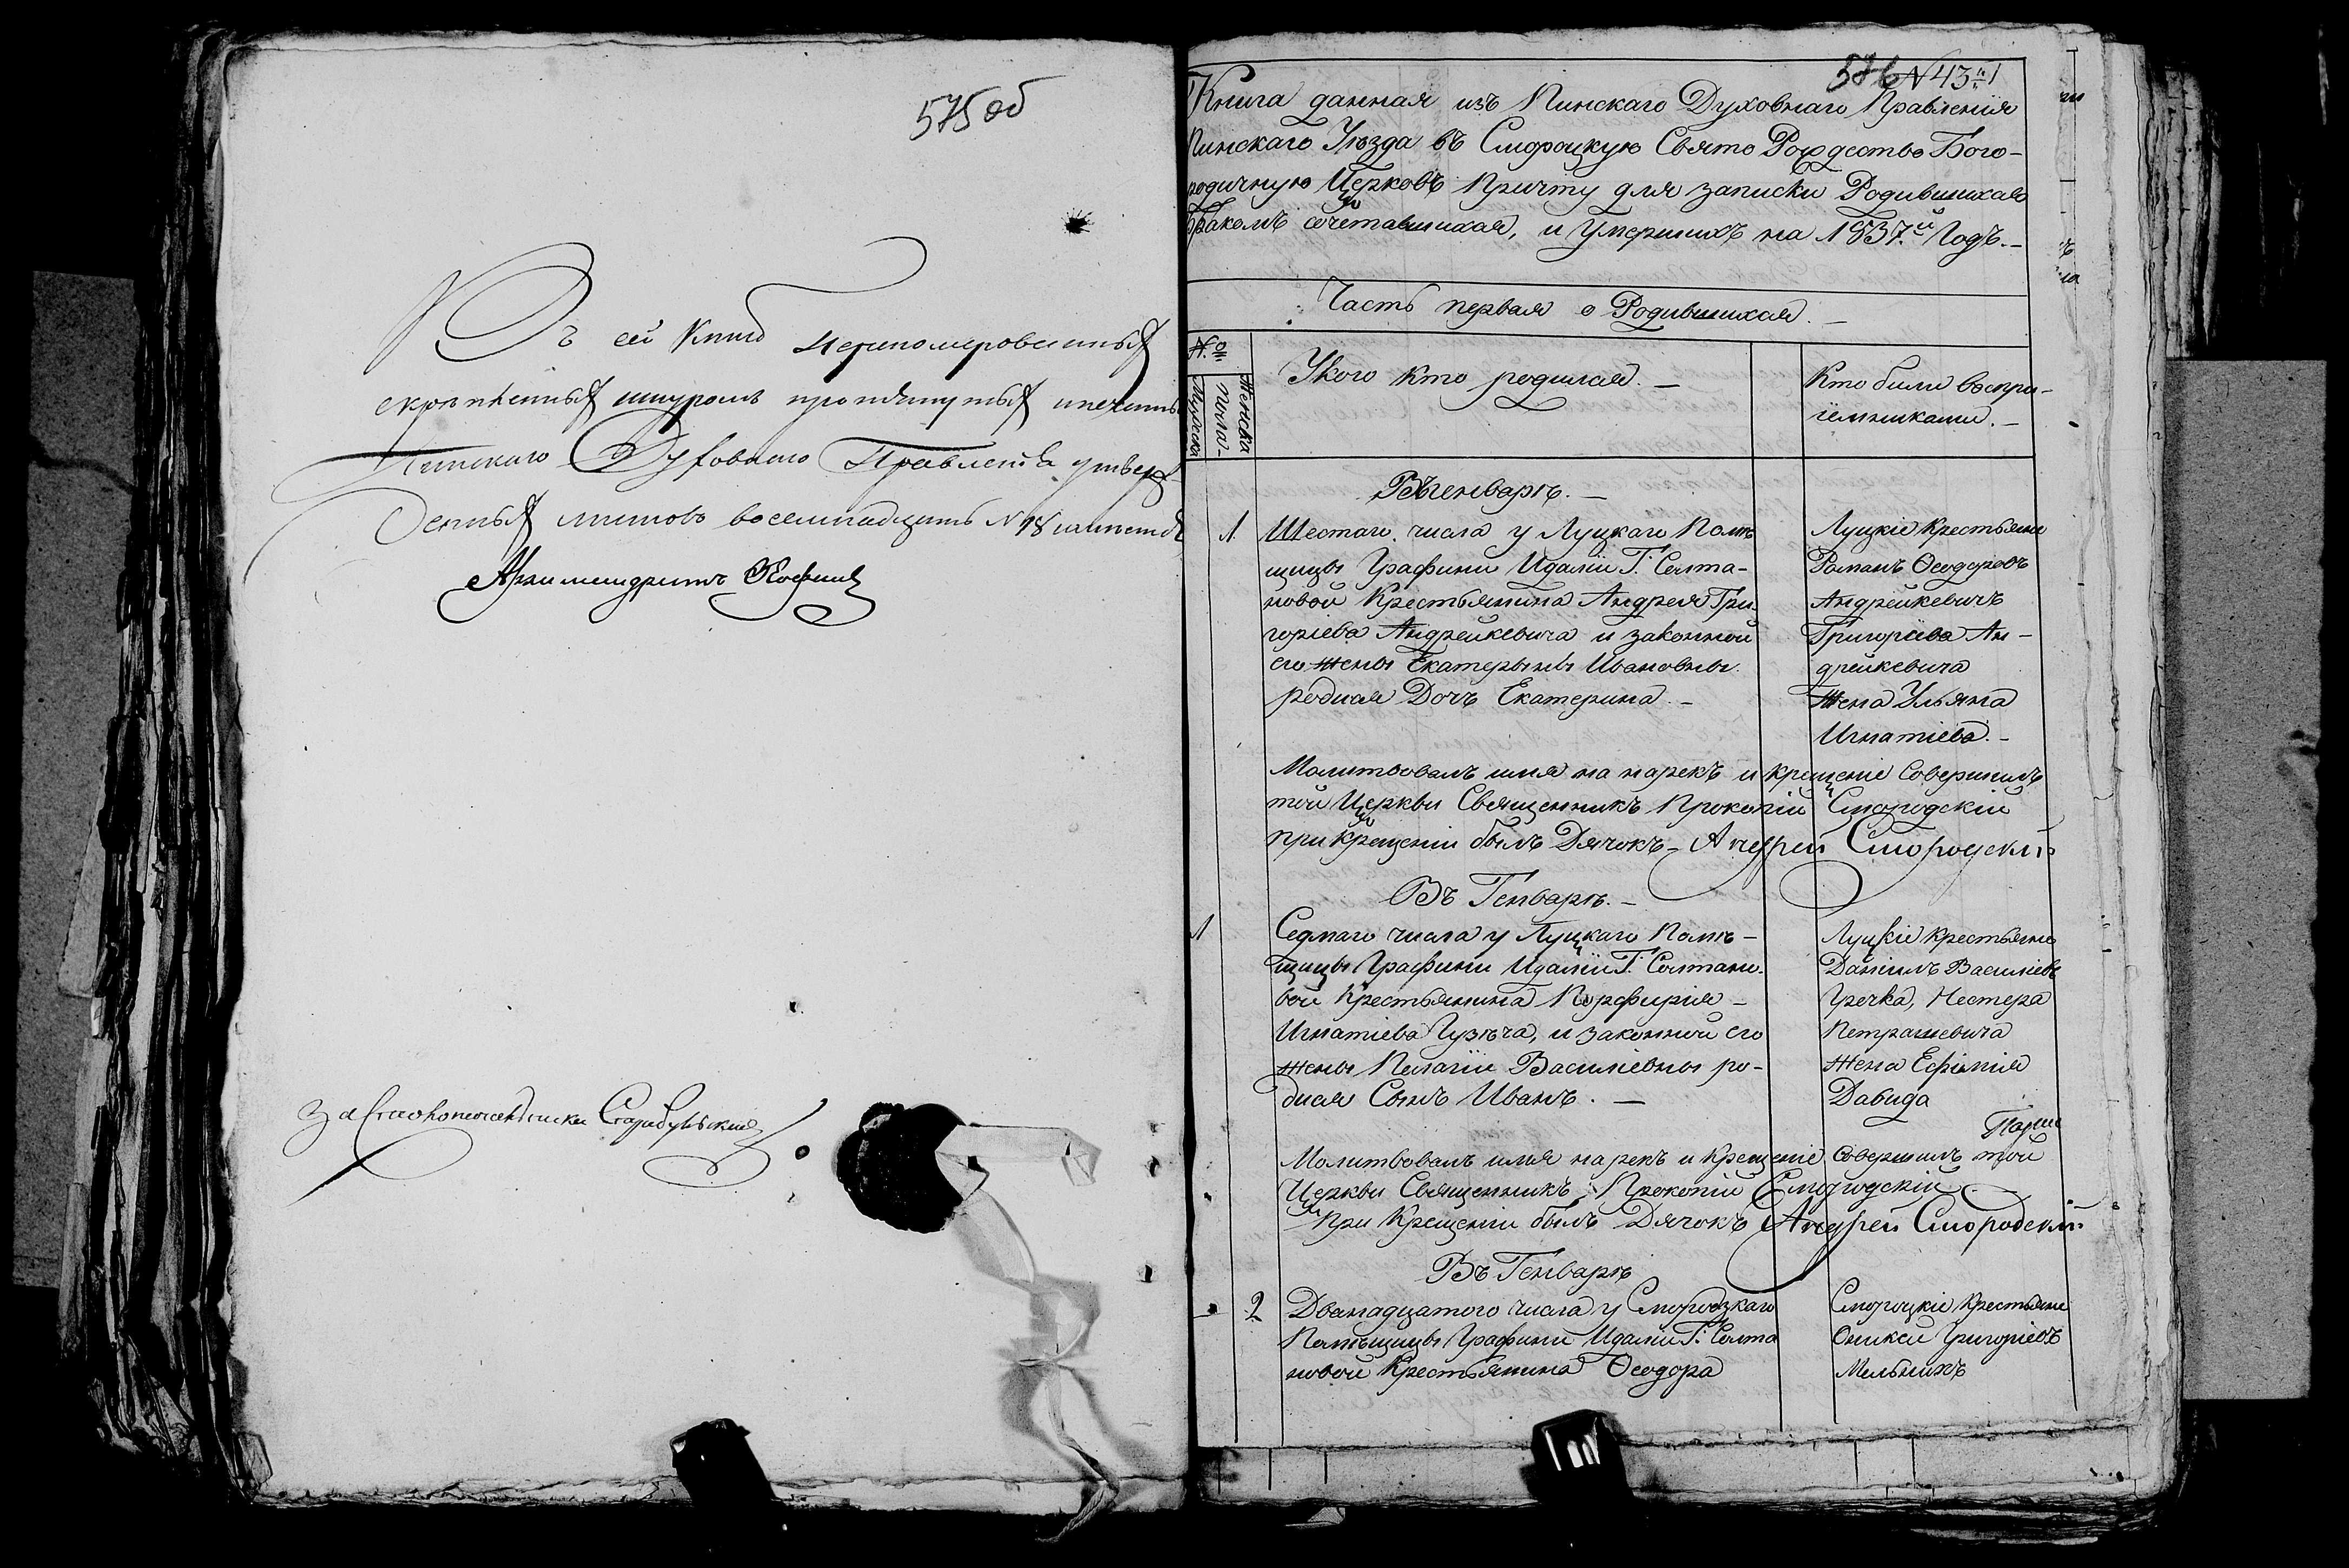 575 об
Въ сей книгѣ перенумерованныхъ
скрѣпленныхъ шнуромъ протянутыхъ и печатью
Пинскаго Духовнаго Правленія утверж-
денныхъ листовъ восемнадцать N 18 листовъ
Архимандритъ
За
576 N 43й 1
Книга данная изъ Пинскаго Духовнаго Правленія
Пинскаго Уѣзда въ Смороцкую Свято Рождество Бого-
родичную Церковъ Причту для записки Родившихся
Бракомъ сочетавшихся, и Умершихъ на 1837й Годъ. –
Часть первая о Родившихся. –
№ Мужеска Женска пола –
У кого кто родился. –
Кто были воспри-
іемниками. –
Въ генварѣ. –
1 Шестаго числа у Луцкаго Помѣ
щицы Графини Идаліи Г: Солта-
новой Крестьянина Андрея Гри-
горіева Андрейкевича и законной
его жены Екатерыны Ивановны
родилая Дочъ Екатерина. –
Луцкіе Крестьяне
Романъ Ѳеодоровъ
Андрейкевичъ
Григоріева Ан-
дрейкевича
Жена Ульяна
Игнатіева. –
Молитвовалъ имя на нарекъ и крещеніе Совершилъ
той Церкви Священникъ Прокопій Смородскій
при крещеніи былъ Дячокъ – Андрей Смородскій
Въ Генварѣ. –
1 Седмаго числа у Луцкаго Помѣ-
щицы Графини Идаліи Г: Солтано-
вой Крестьянина Порфирія –
Игнатіева Гузѣча, и законной его
жены Пелагіи Василіевны ро-
дился Сынъ Иванъ. –
Луцкіе крестьяне
Даніилъ Василіевъ
Гречка, Нестера
Петрашевича
жена Ефімія
Давида
Молитвовалъ имя нарекъ и крещеніе совершилъ той
Церкви Священникъ Прокопій Смородскій
При Крещеніи былъ Дячокъ Андрей Смородскій
Въ Генварѣ
2 Дванадцатого числа у Смородзкаго
Помѣщицы Графини Идаліи Г: Солта
новой Крестьянина Ѳеодора
Смороцкіе Крестьяне
Оникей Григоріевъ
Мельникъ